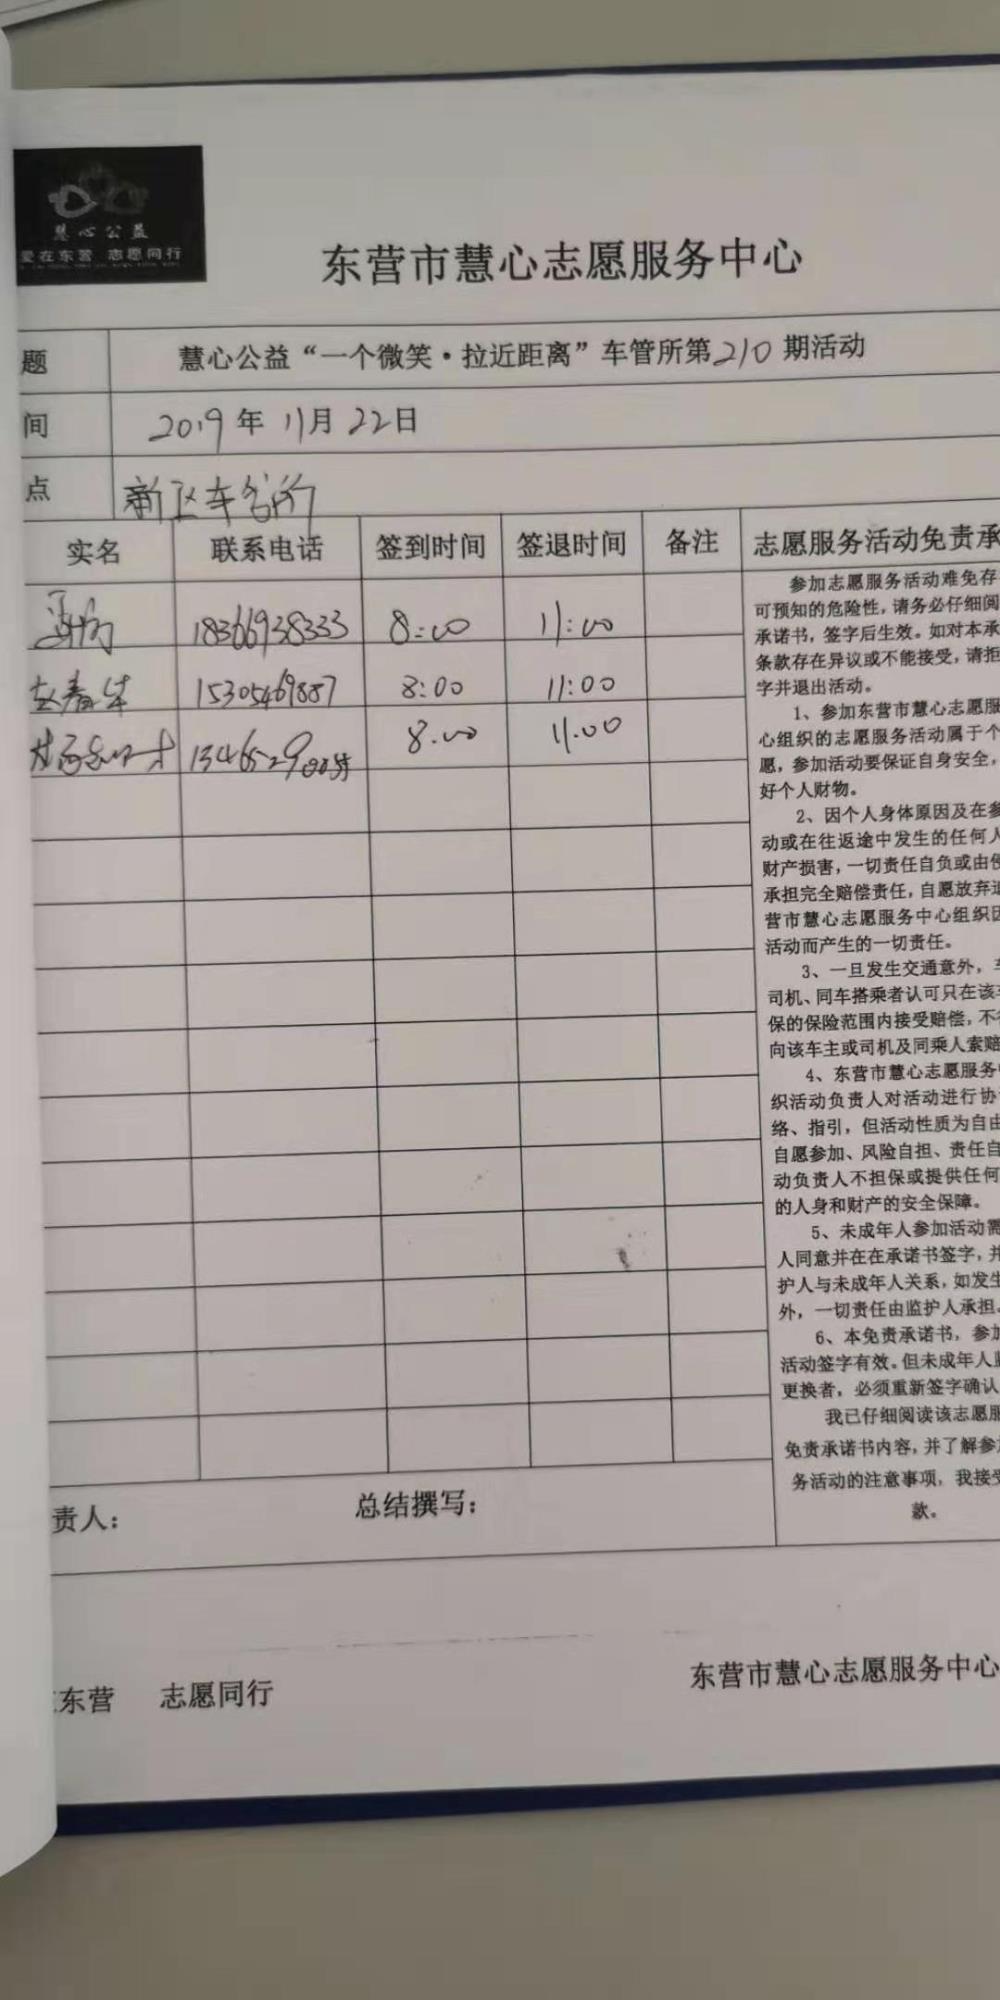 慧心公益
爱在东营 志愿同行
东营市慧心志愿服务中心
题 慧心公益“一个微笑·拉近距离”车管所第210期活动
间 2019年11月22日
点 新区车管所
实名 联系电话 签到时间 签退时间 备注 志愿服务活动免责承
18366938333 8:00 11:00
赵春华 15305469887 8:00 11:00
8:00 11:00
参加志愿服务活动难免存
可预知的危险性，请务必仔细阅
承诺书，签字后生效。如对本承
条款存在异议或不能接受，请拒
字并退出活动。
1、参加东营市慧心志愿服
心组织的志愿服务活动属于个
愿，参加活动要保证自身安全，
好个人财物。
2、因个人身体原因及在参
动或在往返途中发生的任何人
财产损害，一切责任自负或由侵
承担完全赔偿责任，自愿放弃追
营市慧心志愿服务中心组织因
活动而产生的一切责任。
3、一旦发生交通意外，车
司机、同车搭乘者认可只在该车
保的保险范围内接受赔偿，不得
向该车主或司机及同乘人索赔
4、东营市慧心志愿服务中
织活动负责人对活动进行协
络、指引，但活动性质为自由
自愿参加、风险自担、责任自
动负责人不担保或提供任何
的人身和财产的安全保障。
5、未成年人参加活动需
人同意并在在承诺书签字，并
护人与未成年人关系，如发生
外，一切责任由监护人承担。
6、本免责承诺书，参加
活动签字有效。但未成年人监
更换者，必须重新签字确认
我已仔细阅读该志愿服
免责承诺书内容，并了解参加
务活动的注意事项，我接受
款。
责人： 总结撰写：
东营 志愿同行 东营市慧心志愿服务中心